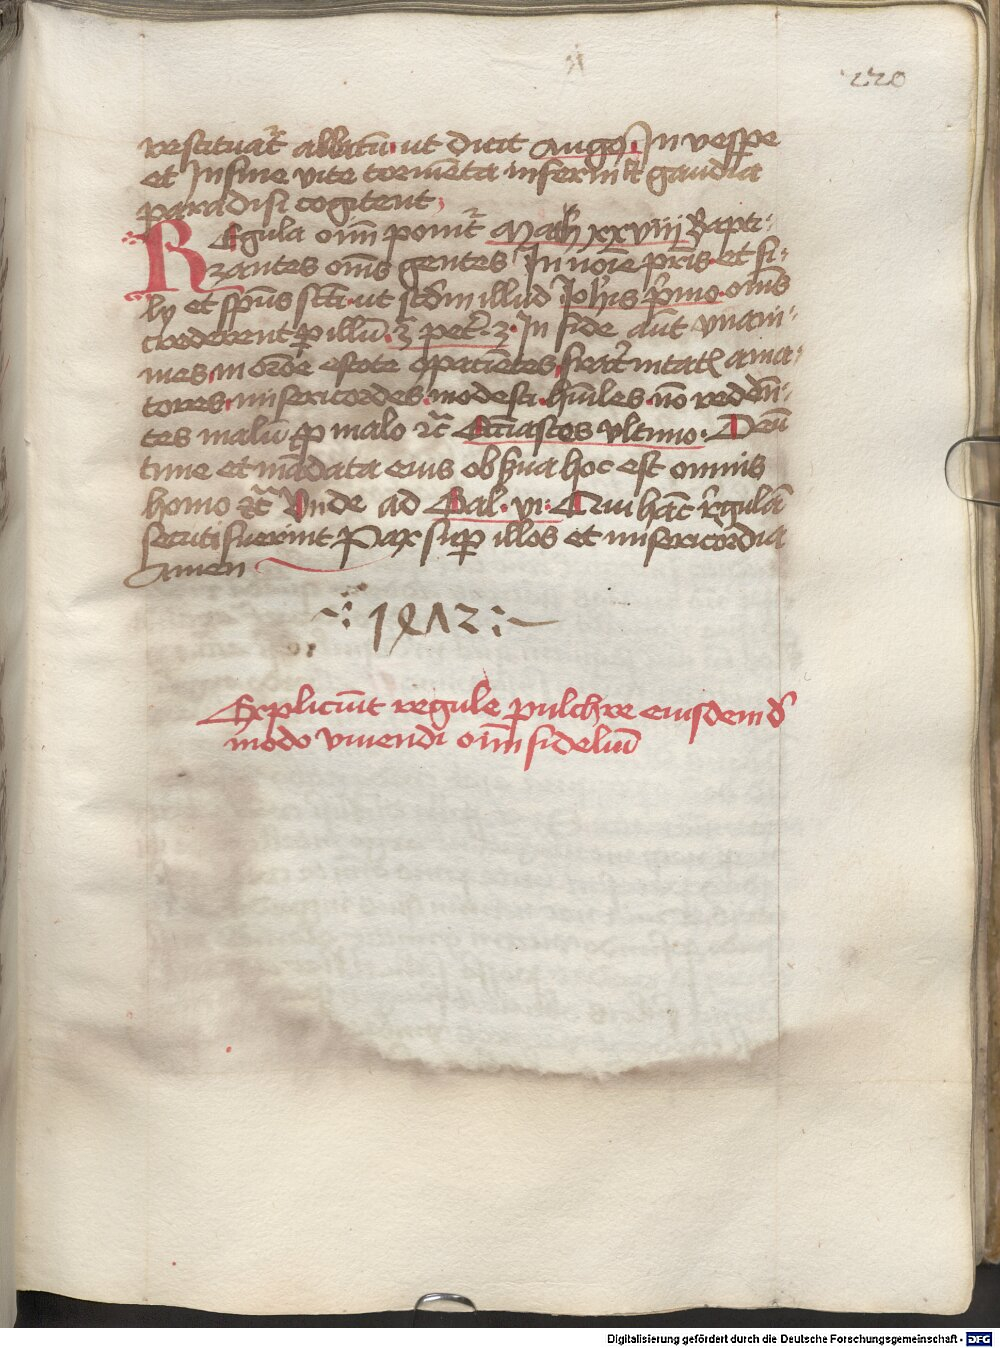 220
restituat᷑ ablatū ut dicit Augo In vespe
et Infine vite tormēta inferni & gaudia
paradisi cogitent
REgula oīm ponit᷑ Math xxviii Bapti-
zantes oēs gentes In noīe pris et fi-
ly et spūs scti ut scdm illud Johīs prīmo oēs
crederent p illū 3 pet᷑ 3 In fide aūt vnani-
mes in orōe estote apacientes frat᷑nitatis ama-
tores misericordes modesti hūiles nō reddēn-
tes malū p malo ꝛc̄ Eccīastes vltimo Deū
time et mādata eius obserua hoc est omnis
homo ꝛc̄ Vnde ad Gal vi Qui hāc regulā
secuti fuerint Pax sup illos et misericordia
Amen
1472
Expliciūt regule pulchre eiusdem d'
modo viuendi oīm fideliū
Digitalisierung gefördert durch die Deutsche Forschungsgemeinschaft - DFG